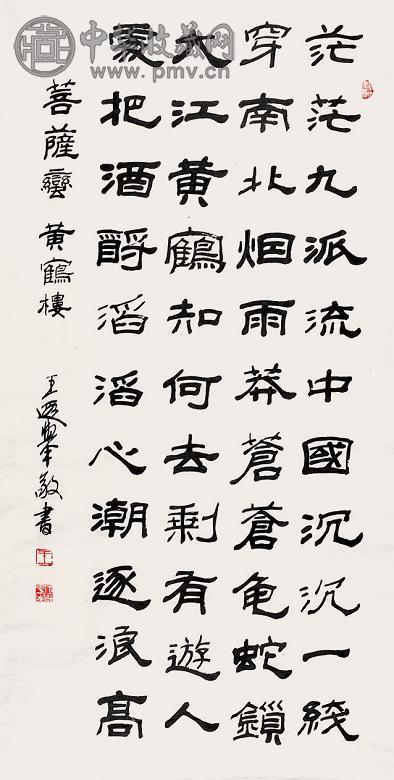 中华收藏网
www.pmv.cn
茫茫九派流中國沉沉一綫
穿南北烟雨莽蒼蒼龟蛇鎖
大江黄鶴知何去剩有遊人
處把酒酹滔滔心潮逐浪高
菩薩蠻 黄鶴樓 王遐舉敬書